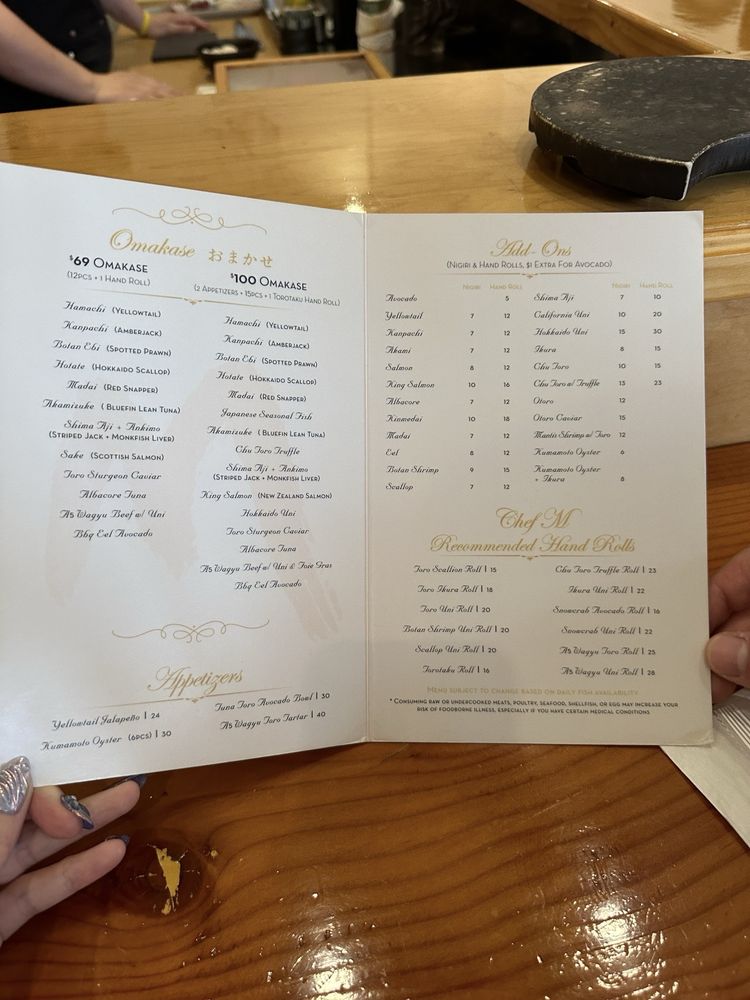 Omakase おまかせ
$69 OMAKASE
(12PCS + 1 HAND ROLL)
Hamachi (YELLOWTAIL)
Kanpachi (AMBERJACK)
Botan Ebi (SPOTTED PRAWN)
Hotate (HOKKAIDO SCALLOP)
Madai (RED SNAPPER)
Akamizuke (BLUEFIN LEAN TUNA)
Shima Aji + Ankimo
(STRIPED JACK + MONKFISH LIVER)
Sake (SCOTTISH SALMON)
Toro Sturgeon Caviar
Albacore Tuna
A5 Wagyu Beef w/ Uni
Bbq Eel Avocado
$100 OMAKASE
(2 APPETIZERS + 15PCS + 1 TOROTAKU HAND ROLL)
Hamachi (YELLOWTAIL)
Kanpachi (AMBERJACK)
Botan Ebi (SPOTTED PRAWN)
Hotate (HOKKAIDO SCALLOP)
Madai (RED SNAPPER)
Japanese Seasonal Fish
Akamizuke (BLUEFIN LEAN TUNA)
Chu Toro Truffle
Shima Aji + Ankimo
(STRIPED JACK + MONKFISH LIVER)
King Salmon (NEW ZEALAND SALMON)
Hokkaido Uni
Toro Sturgeon Caviar
Albacore Tuna
A5 Wagyu Beef w/ Uni & Foie Gras
Bbq Eel Avocado
Appetizers
Yellowtail Jalapeño | 24
Kumamoto Oyster (6PCS) | 30
Tuna Toro Avocado Bowl | 30
A5 Wagyu Toro Tartar | 40
Add-Ons
(NIGIRI & HAND ROLLS, $1 EXTRA FOR AVOCADO)
NIGIRI HAND ROLL
Avocado 5
Yellowtail 7 12
Kanpachi 7 12
Akami 7 12
Salmon 8 12
King Salmon 10 16
Albacore 7 12
Kinmedai 10 18
Madai 7 12
Eel 8 12
Botan Shrimp 9 15
Scallop 7 12
NIGIRI HAND ROLL
Shima Aji 7 10
California Uni 10 20
Hokkaido Uni 15 30
Ikura 8 15
Chu Toro 10 15
Chu Toro w/ Truffle 13 23
Otoro 12
Otoro Caviar 15
Mantis Shrimp w/ Toro 12
Kumamoto Oyster 6
Kumamoto Oyster
+ Ikura 8
Chef M
Recommended Hand Rolls
Toro Scallion Roll | 15
Toro Ikura Roll | 18
Toro Uni Roll | 20
Botan Shrimp Uni Roll | 20
Scallop Uni Roll | 20
Torotaku Roll | 16
Chu Toro Truffle Roll | 23
Ikura Uni Roll | 22
Snowcrab Avocado Roll | 16
Snowcrab Uni Roll | 22
A5 Wagyu Toro Roll | 25
A5 Wagyu Uni Roll | 28
MENU SUBJECT TO CHANGE BASED ON DAILY FISH AVAILABILITY
* CONSUMING RAW OR UNDERCOOKED MEATS, POULTRY, SEAFOOD, SHELLFISH, OR EGG MAY INCREASE YOUR
RISK OF FOODBORNE ILLNESS, ESPECIALLY IF YOU HAVE CERTAIN MEDICAL CONDITIONS